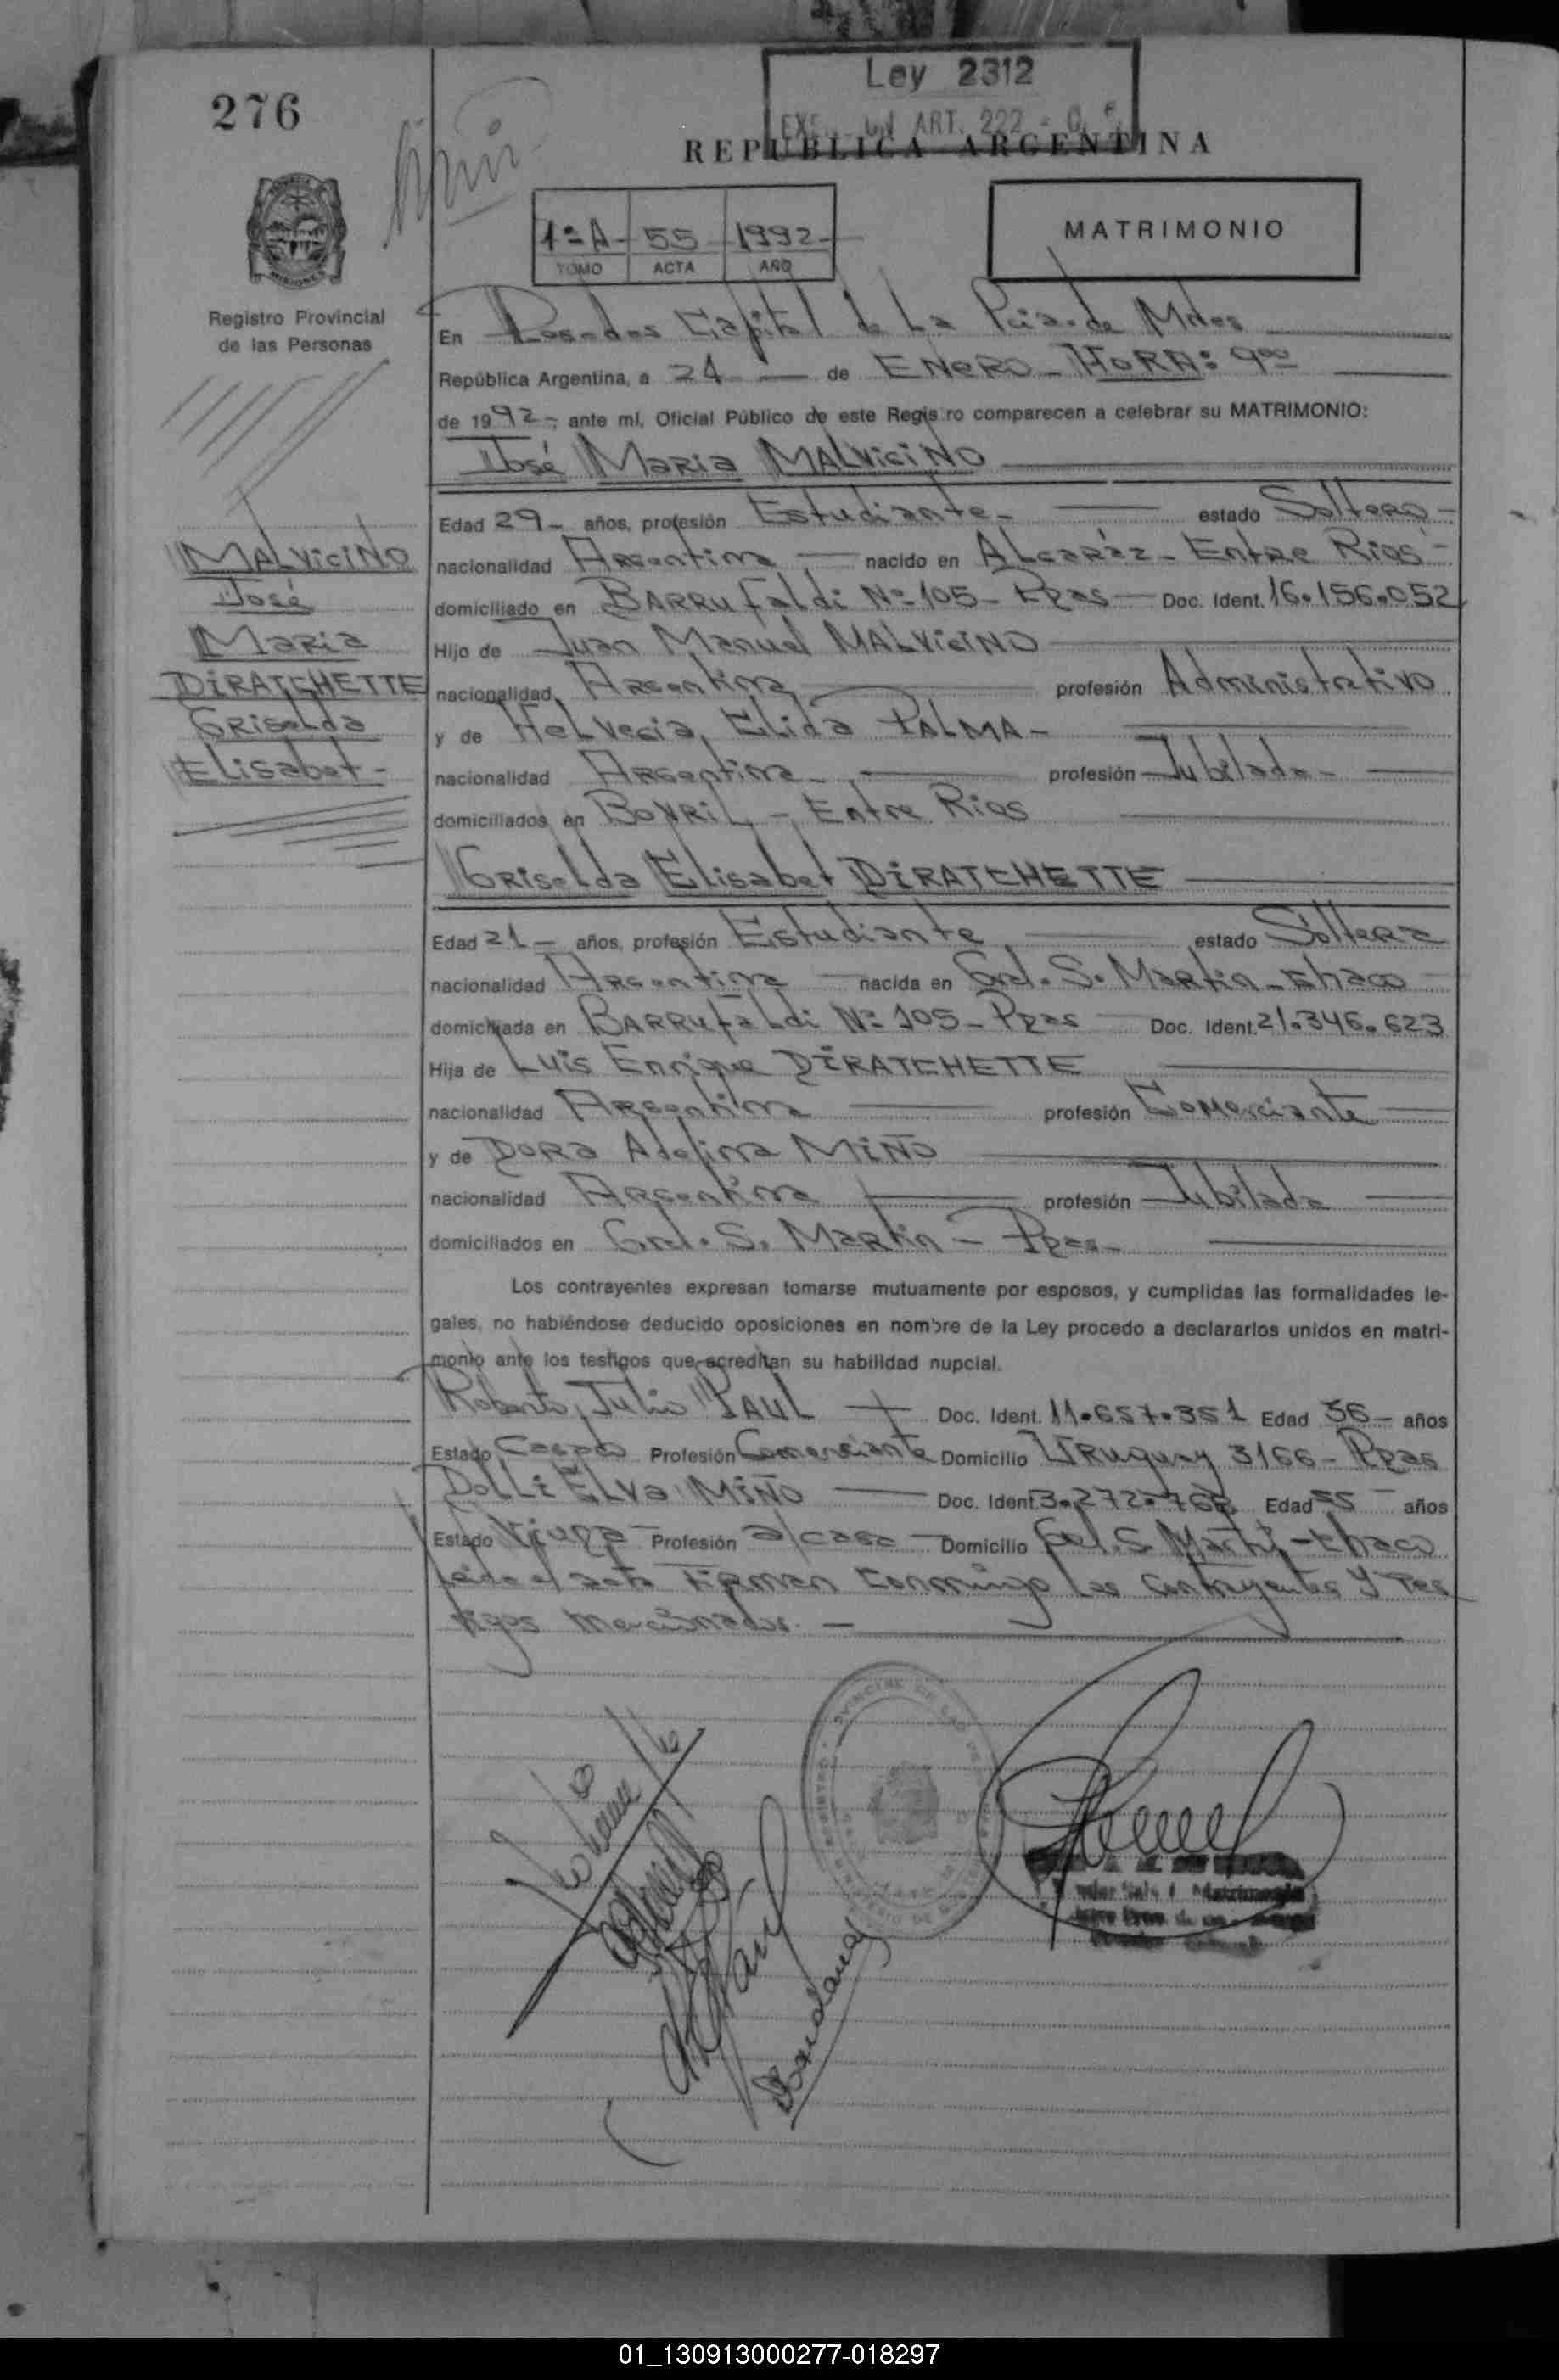 276
Ley 2312
ART. 222
REPUBLICA ARGENTINA
1ª A - 55 - 1992 -
TOMO ACTA AÑO
MATRIMONIO
Registro Provincial
de las Personas
En Posadas Capital de La Pcia. de Mnes
República Argentina, a 24 - de ENERO - HORA: 9ºº
de 1992 -, ante mí, Oficial Público de este Regis ro comparecen a celebrar su MATRIMONIO:
José Maria MALVICINO
Edad 29 - años, profesión Estudiante - estado Soltero -
nacionalidad Argentina - nacido en ALcaráz - Entre Rios -
domiciliado en BARRUfaldi Nº 105 - Ppas - Doc. Ident. 16.156.052
Hijo de Juan Manuel MALVICINO
nacionalidad Argentina profesión Administrativo
y de Helvecia Elida PALMA -
nacionalidad Argentina - profesión Jubilada -
domiciliados en BOVRIL - Entre Rios
Griselda Elisabet DIRATCHETTE
Edad 21 - años, profesión Estudiante estado Soltera
nacionalidad Argentina - nacida en Gral. S. Martin - Chaco
domiciliada en BARRUfaLdi Nº 105 - Ppas Doc. Ident. 21.346.623
Hija de Luis Enrique DIRATCHETTE
nacionalidad Argentina profesión Comerciante
y de Dora Adelina MIÑO
nacionalidad Argentina profesión Jubilada
domiciliados en Gral. S. Martin - Ppas -
MALVICINO
José
Maria
DIRATCHETTE
Griselda
Elisabet -
Los contrayentes expresan tomarse mutuamente por esposos, y cumplidas las formalidades le-
gales, no habiéndose deducido oposiciones en nombre de la Ley procedo a declararlos unidos en matri-
monio ante los testigos que acreditan su habilidad nupcial.
Roberto Julio PAUL Doc. Ident. 11.657.351 Edad 36 - años
Estado Casado Profesión Comerciante Domicilio URuguay 3166 - Ppas
DOLLI ELva MIÑO Doc. Ident. 3.272. Edad 55 años
Estado Viuda Profesión a/casa Domicilio Gel. S. Martin - Chaco
Leida el acta Firman conmigo los contrayentes y tes
tigos mencionados. -
01_130913000277-018297